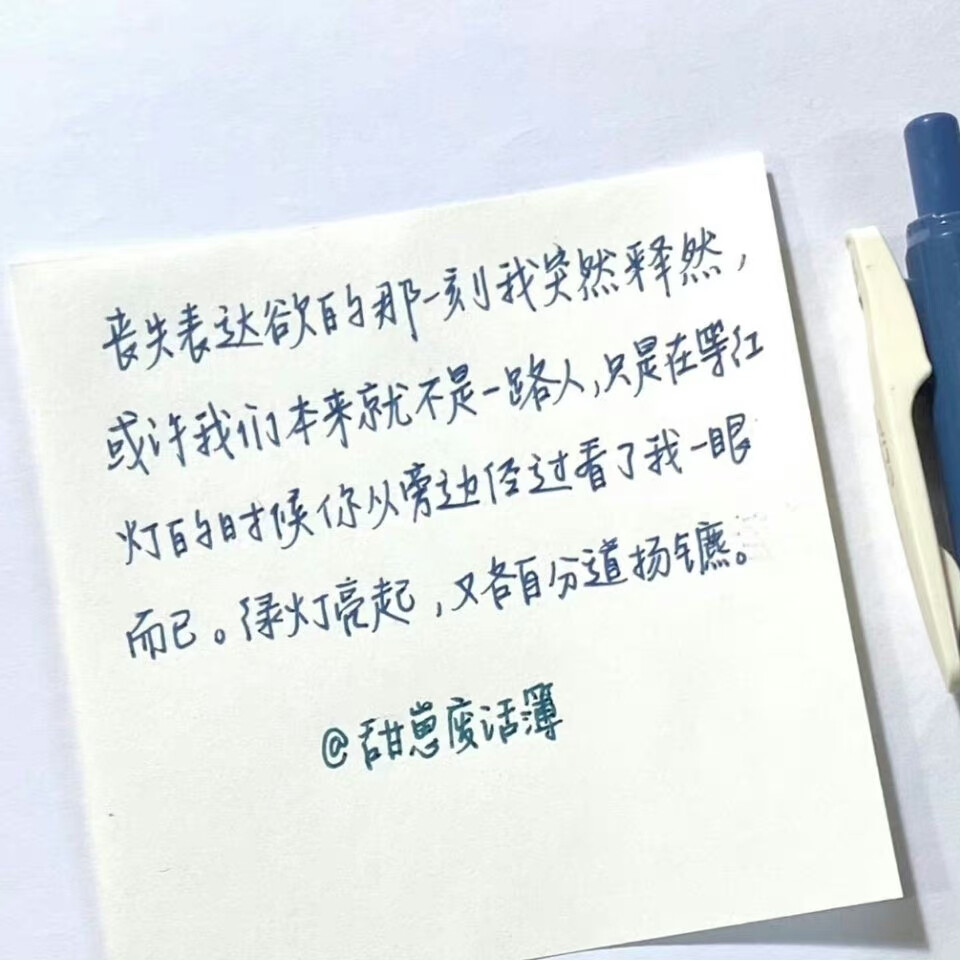 丧失表达欲的那一刻我突然释然,
或许我们本来就不是一路人,只是在等红
灯的时候你从旁边经过看了我一眼
而已。绿灯亮起,又各自分道扬镳。
@甜崽废话簿